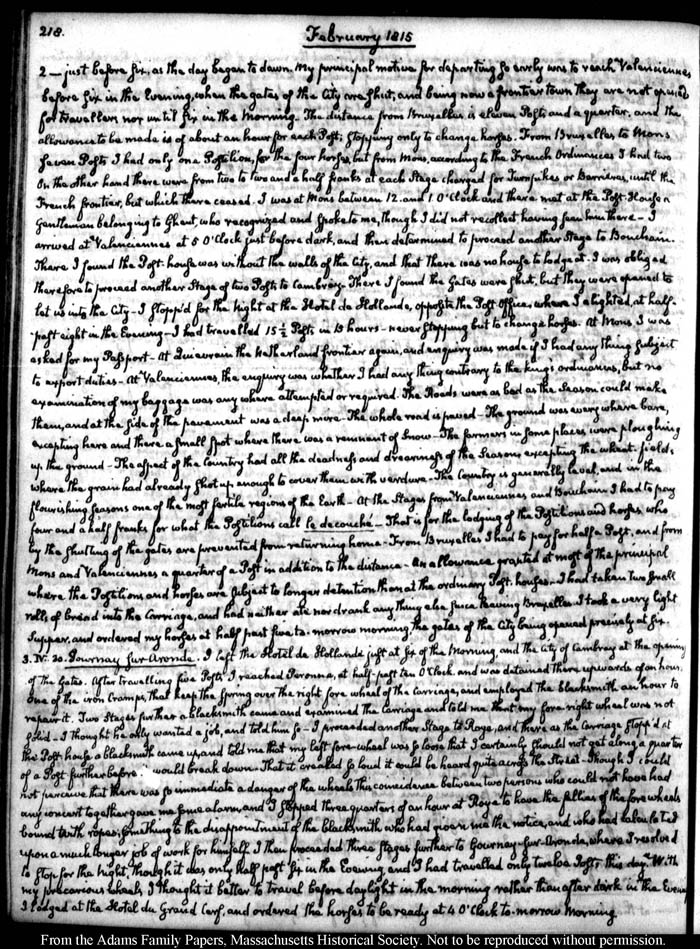 218.
February 1815
2 — just before six, as the day began to dawn. My principal motive for departing so early was to reach Valenciennes
before six in the Evening, when the gates of the City are shut, and being now a frontier town they are not opened
for travellers, nor until six in the Morning. The distance from Bruxelles is eleven Posts and a quarter, and the
allowance to be made is of about an hour for each Post; stopping only to change horses. From Bruxelles to Mons
seven Posts I had only one Postilion, for the four horses, but from Mons, according to the French Ordinances I had two
On the other hand there were from two to two and a half franks at each Stage charged for Turnpikes or Barrieres, until the
French frontier, but which there ceased. I was at Mons between 12. and 1 O'Clock and there met at the Post-House a
Gentleman belonging to Ghent, who recognized and spoke to me, though I did not recollect having seen him there — I
arrived at Valenciennes at 5 O'Clock just before dark, and then determined to proceed another Stage to Bouchain.
There I found the Post-house was without the walls of the City, and that there was no house to lodge at. I was obliged
therefore to proceed another Stage of two Posts to Cambray. There I found the Gates were shut, but they were opened to
let us into the City — I stopp'd for the Night at the Hotel de Hollande, opposite the Post Office, where I alighted, at half-
past eight in the Evening — I had travelled 15 1/2 Posts in 13 hours — never stopping but to change horses. At Mons I was
asked for my Passport — At Quievrain the Netherland frontier again, and enquiry was made if I had any thing subject
to export duties — At Valenciennes, the enquiry was whether I had any thing contrary to the king's ordinances, but no
examination of my baggage was any where attempted or required. The Roads were as bad as the Season could make
them, and at the side of the pavement was a deep mire — The whole road is paved — The ground was every where bare,
excepting here and there a small spot where there was a remnant of Snow — The farmers in some places were ploughing
up the ground — The aspect of the Country had all the deadness and dreariness of the Season excepting the wheat-fields
where the grain had already shot up enough to cover them with verdure — The Country is generally level, and in the
flourishing seasons one of the most fertile regions of the Earth — At the Stages from Valenciennes and Bouchain I had to pay
four and a half franks for what the Postilions call le decouché — That is for the lodging of the Postilions and horses, who
by the shutting of the gates are prevented from returning home — From Bruxelles I had to pay for half a Post, and from
Mons and Valenciennes a quarter of a Post in addition to the distance — An allowance granted at most of the principal
where the Postilions and horses are subject to longer detention than at the ordinary Post-houses — I had taken two small
rolls of bread into the Carriage, and had neither ate nor drank any thing else since leaving Bruxelles I took a very light
supper, and ordered my horses at half past five to-morrow morning, the gates of the City being opened precisely at six.
3. IV. 30. Gournay sur-Aronde. I left the Hotel de Hollande just at six of the Morning and the City of Cambray at the opening
of the Gates. After travelling five Posts, I reached Peronne, at half-past ten O'Clock and was detained there upwards of an hour.
One of the iron Cramps, that keep the Spring over the right fore wheel of the Carriage, and employed the blacksmith an hour to
repair it. Two Stages further a blacksmith came and examined the Carriage and told me that my fore-right wheel was not
solid — I thought he only wanted a job, and told him so — I proceeded another Stage to Roye, and there as the Carriage stopp'd at
the Post house a blacksmith came up, and told me that my left fore-wheel was so loose that I certainly should not get along a quarter
of a Post further before would break down — That it creaked so loud it could be heard quite across the Street — Though I could
not perceive that there was so immediate a danger of the wheels this coincidence between two persons who could not have had
any concert together gave me some alarm, and I stopped three quarters of an hour at Roye to have the fellies of the fore wheels
bound with ropes; something to the disappointment of the blacksmith who had given me the notice, and who had calculated
upon a much longer job of work for himself. I then proceeded three Stages further to Gournay-sur-Aronde, where I resolved
to stop for the night, though it was only half past six in the Evening and I had travelled only twelve Posts this day. With
my precarious wheels, I thought it better to travel before daylight in the morning rather than after dark in the Evening
I lodged at the Hotel du Grand Cerf, and ordered the horses to be ready at 4 O'Clock to-morrow Morning
From the Adams Family Papers, Massachusetts Historical Society. Not to be reproduced without permission.